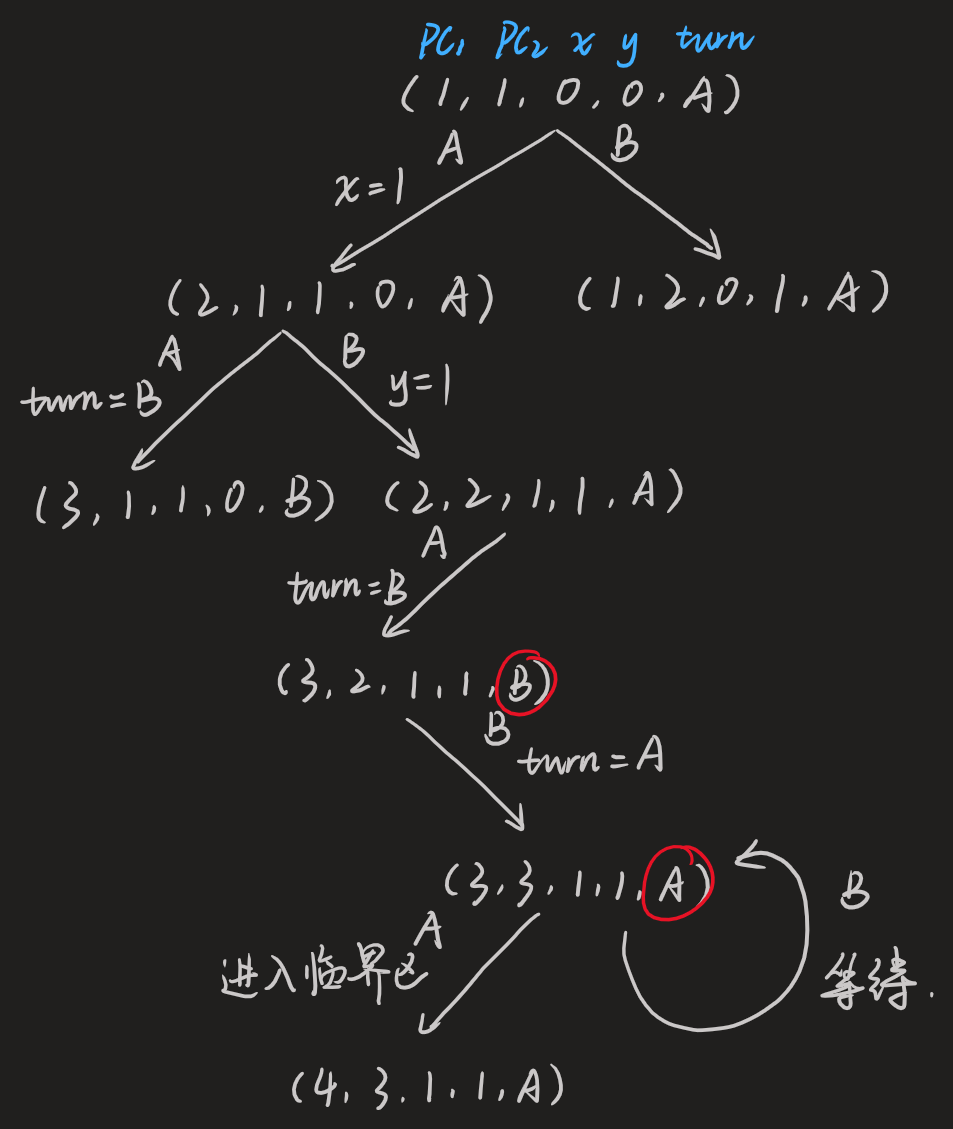 PC₁ PC₂ x y turn
(1, 1, 0, 0, A)
A B
x=1
(2, 1, 1, 0, A) (1, 2, 0, 1, A)
A B
turn=B y=1
(3, 1, 1, 0, B) (2, 2, 1, 1, A)
A
turn=B
(3, 2, 1, 1, B)
B
turn=A
(3, 3, 1, 1, A)
B
A
进入临界区 等待.
(4, 3, 1, 1, A)